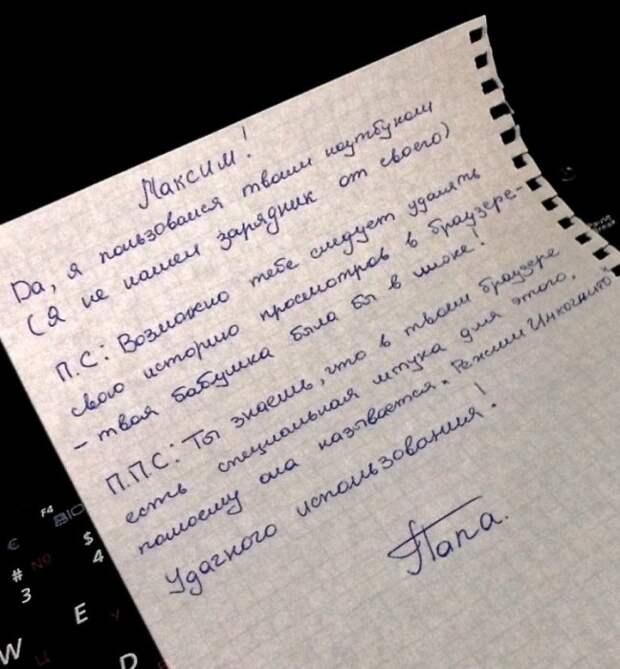 Максим!
Да, я пользовался твоим ноутбуком
(Я не нашел зарядник от своего)
П.С: Возможно тебе следует удалять
свою историю просмотров в браузере-
- твоя бабушка была бы в шоке!
П.П.С: Ты знаешь, что в твоем браузере
есть специальная штука для этого,
помоему она называется "Режим Инкогнито"
Удачного использования!
Папа.
F4
€
#
3
$
4
W
E
D